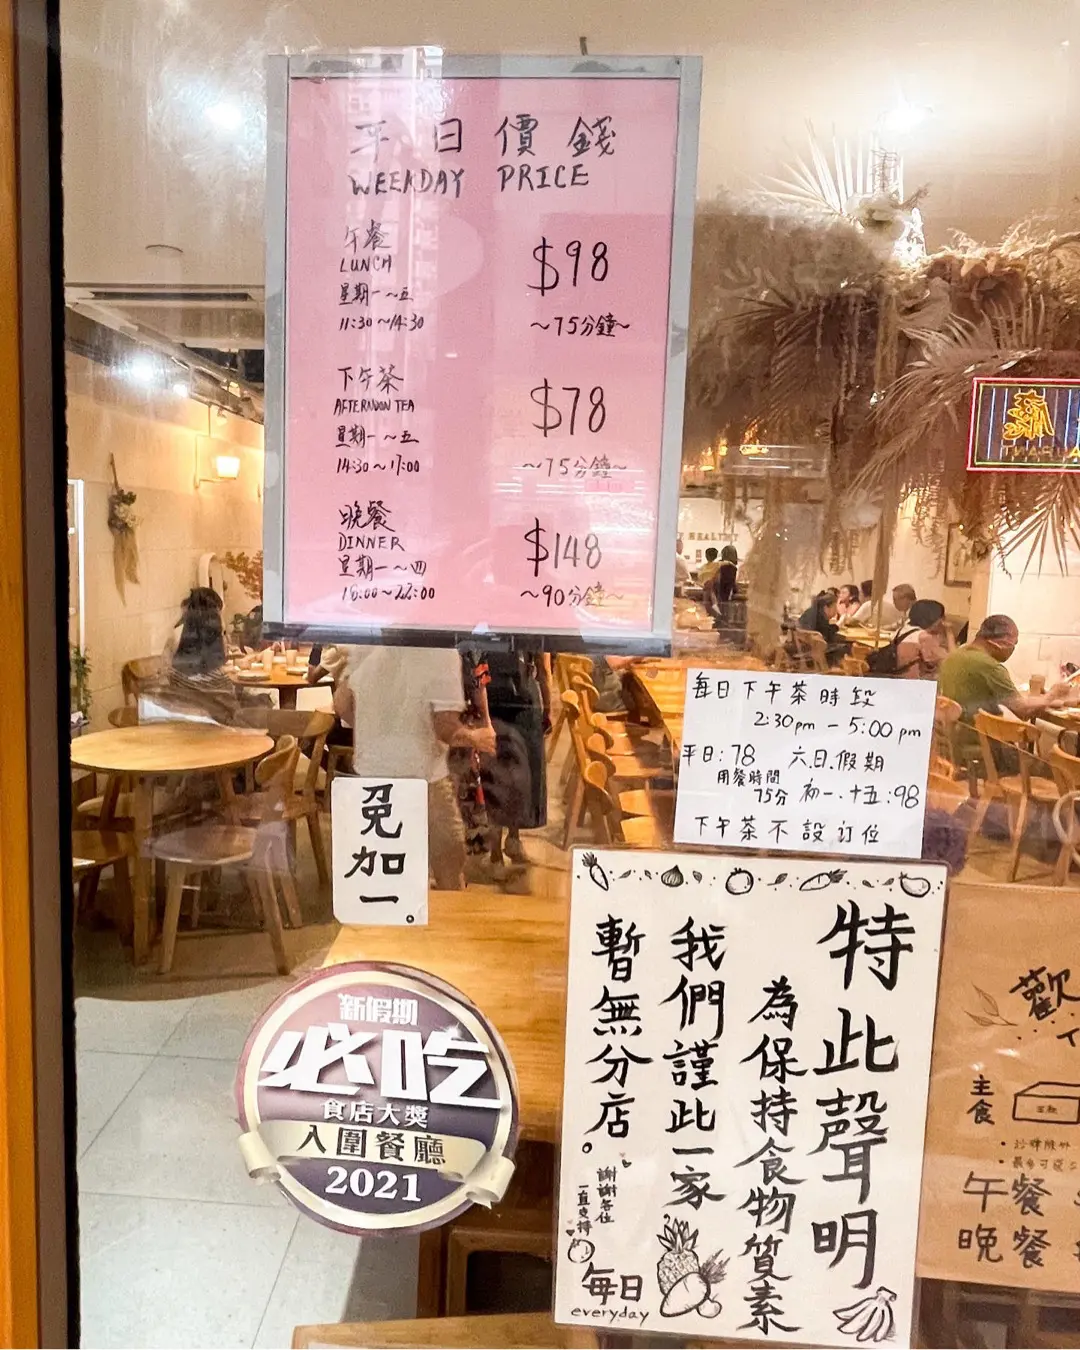 平日價錢
WEEKDAY PRICE
午餐
LUNCH
星期一~五
11:30~14:30
$98
~75分鐘~
下午茶
AFTERNOON TEA
星期一~五
14:30~17:00
$78
~75分鐘~
晚餐
DINNER
星期一~四
18:00~22:00
$148
~90分鐘~
HEALTHY
每日下午茶時段
2:30pm - 5:00pm
平日:78 六.日.假期
用餐時間
75分 初一.十五:98
下午茶不設訂位
免加一。
新假期
必吃
食店大獎
入圍餐廳
2021
特此聲明
為保持食物質素
我們謹此一家
暫無分店。
謝謝各位
一直支持
每日
everyday
歡
主食
午餐
晚餐